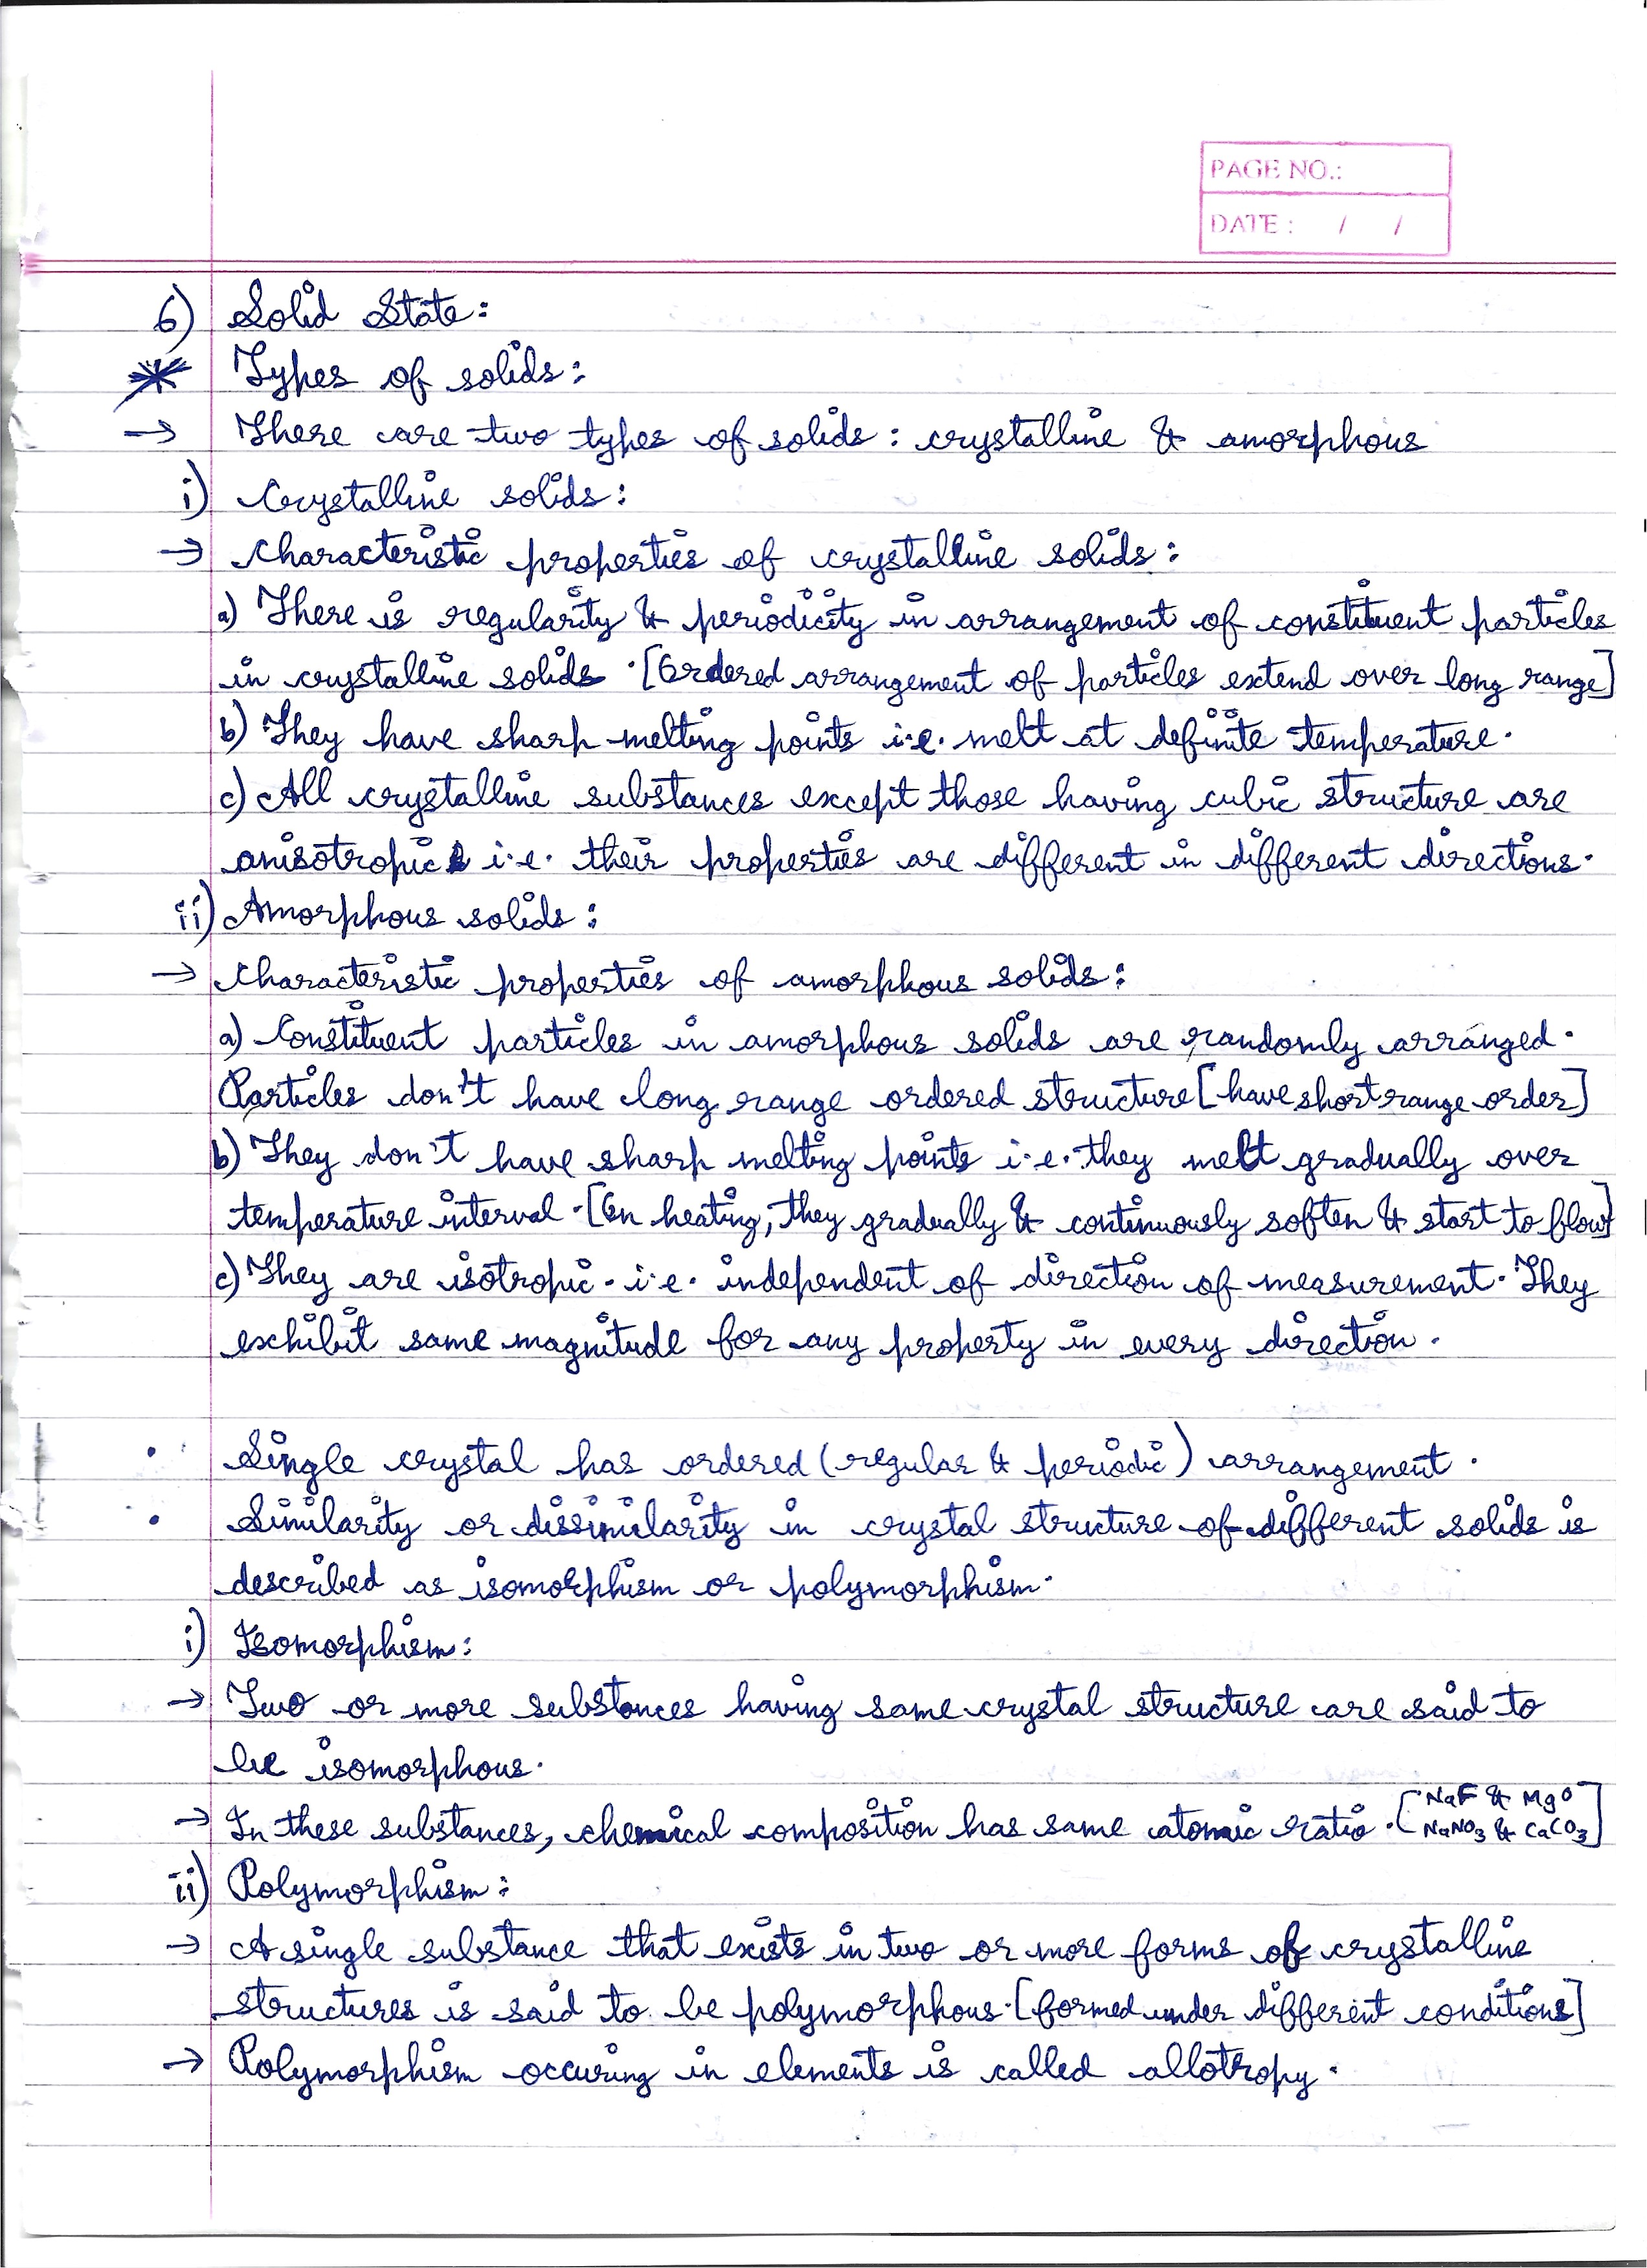 PAGE NO.:
DATE : / /
6) Solid State:
* Types of solids:
→ There are two types of solids: crystalline & amorphous
i) Crystalline solids:
→ Characteristic properties of crystalline solids:
a) There is regularity & periodicity in arrangement of constituent particles
in crystalline solids. [Ordered arrangement of particles extend over long range]
b) They have sharp melting points i.e. melt at definite temperature.
c) All crystalline substances except those having cubic structure are
anisotropic i.e. their properties are different in different directions.
ii) Amorphous solids:
→ Characteristic properties of amorphous solids:
a) Constituent particles in amorphous solids are randomly arranged.
Particles don't have long range ordered structure [have short range order]
b) They don't have sharp melting points i.e. they melt gradually over
temperature interval. [On heating, they gradually & continuously soften & start to flow]
c) They are isotropic. i.e. independent of direction of measurement. They
exhibit same magnitude for any property in every direction.
• Single crystal has ordered (regular & periodic) arrangement.
• Similarity or dissimilarity in crystal structure of different solids is
described as isomorphism or polymorphism.
i) Isomorphism:
→ Two or more substances having same crystal structure are said to
be isomorphous.
→ In these substances, chemical composition has same atomic ratio. [NaF & MgO
NaNO₃ & CaCO₃]
ii) Polymorphism:
→ A single substance that exists in two or more forms of crystalline
structures is said to be polymorphous. [formed under different conditions]
→ Polymorphism occuring in elements is called allotropy.